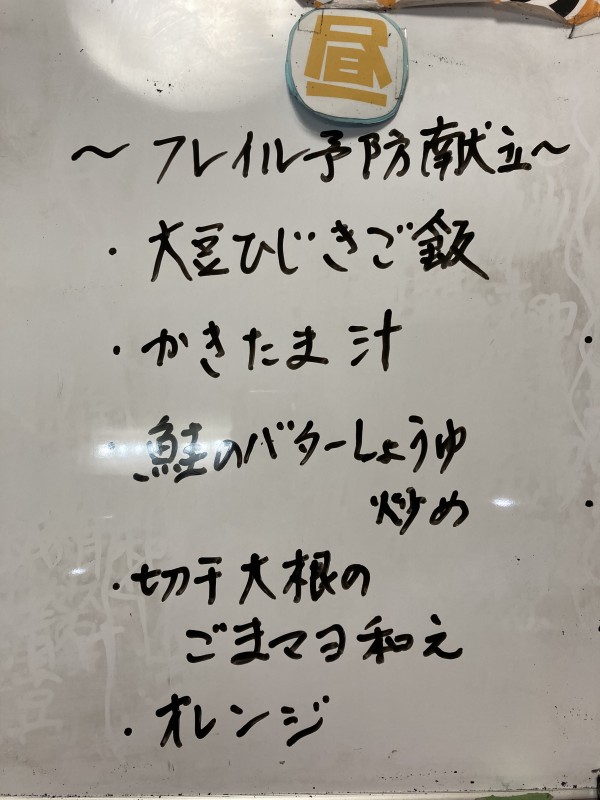 昼
～フレイル予防献立～
・大豆ひじきご飯
・かきたま汁
・鮭のバターしょうゆ
炒め
・切干大根の
ごまマヨ和え
・オレンジ